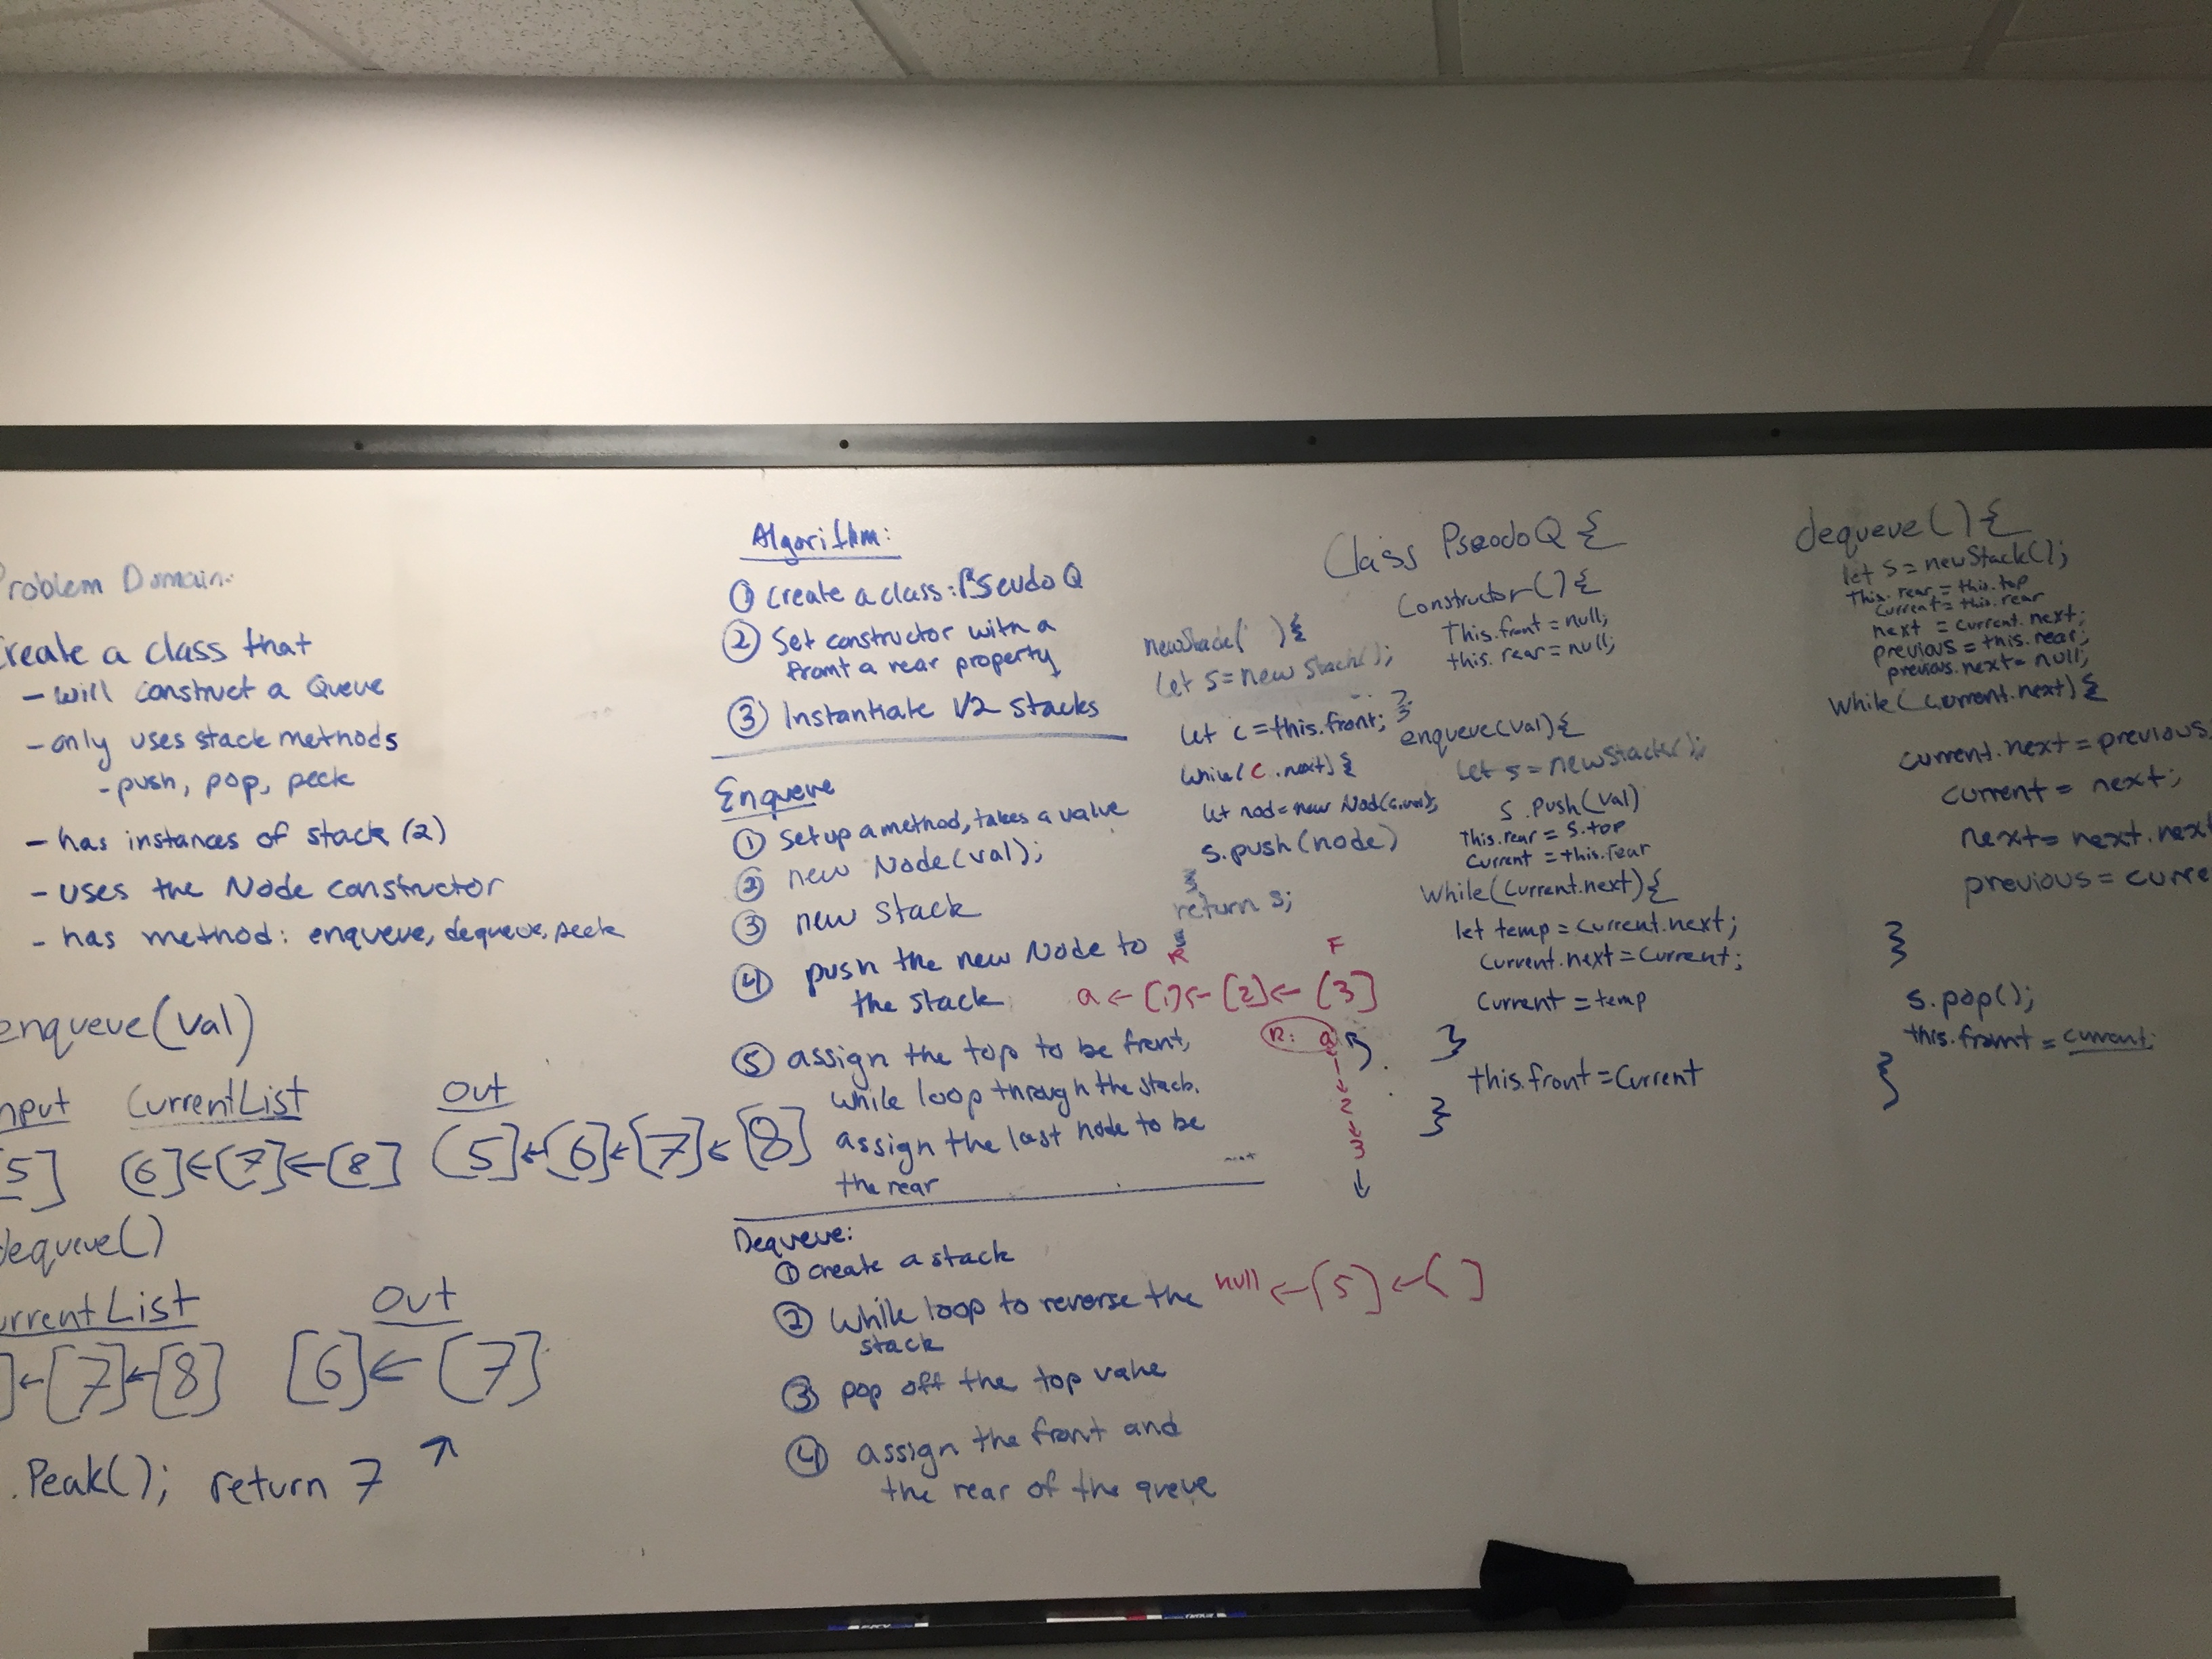 Problem Domain:
Create a class that
- will construct a Queue
- only uses stack methods
- push, pop, peek
- has instances of stack (2)
- uses the Node constructor
- has method: enqueue, dequeue, peek
enqueue(val)
nput CurrentList Out
5] [6]←[7]←[8] [5]←[6]←[7]←[8]
dequeue()
urrentList Out
]←[7]←[8] [6]←[7]
.Peak(); return 7
Algorithm:
① Create a class: PseudoQ
② Set constructor with a
front a rear property
③ Instantiate 1/2 stacks
Enqueue
① Setup a method, takes a value
② new Node(val);
③ new Stack
④ push the new Node to
the stack
⑤ assign the top to be front,
while loop through the stack.
assign the last node to be
the rear
Dequeue:
① create a stack
② While loop to reverse the
stack
③ pop off the top value
④ assign the front and
the rear of the queue
let s=new Stack();
let c=this.front;
while(c.next){
let nod=new Nod(c.val);
s.push(node)
}
return s;
}
R F
a ← [1]← [2]← [3]
R: a
1
↓
2
↓
3
↓
null ←[5] ←[ ]
Class PseodoQ {
Constructor(){
This.front = null;
this.rear = null;
}
enqueue(val){
Let s = newStack();
s.push(val)
This.rear = s.top
Current = this.rear
While(Current.next){
let temp = Current.next;
Current.next = Current;
Current = temp
}
this.front = Current
}
dequeue(){
let S = newStack();
This.rear = this.top
Current = this.rear
next = Current.next;
previous = this.rear;
previous.next = null;
While(Current.next){
Current.next = previous
Current = next;
next = next.next
previous = curre
}
s.pop();
this.front = current;
}